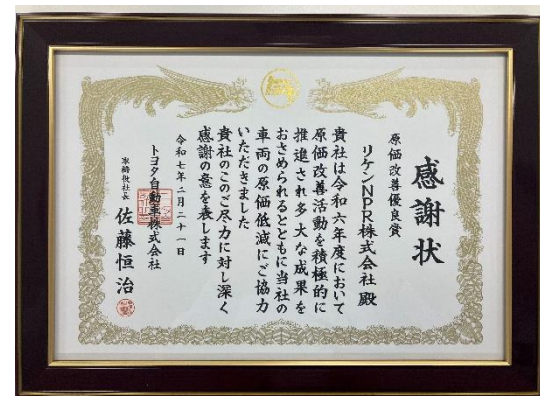 感謝状
原価改善優良賞
リケンNPR株式会社 殿
貴社は令和六年度において
原価改善活動を積極的に
推進され多大な成果を
おさめられるとともに当社の
車両の原価低減にご協力
いただきました
貴社のこのご尽力に対し深く
感謝の意を表します
令和七年二月二十一日
トヨタ自動車株式会社
取締役社長 佐藤恒治